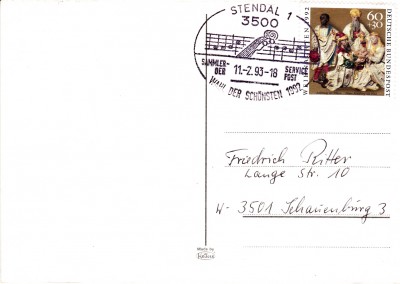 STENDAL 1
3500
SAMMLER-
SERVICE
DER
11.-2.93-18
POST
WAHL DER SCHÖNSTEN 1992
60
+30
DEUTSCHE BUNDESPOST
WEIHNACHTEN 1992
Friedrich Ritter
Lange Str. 10
W- 3501 Schauenburg 3
Made by